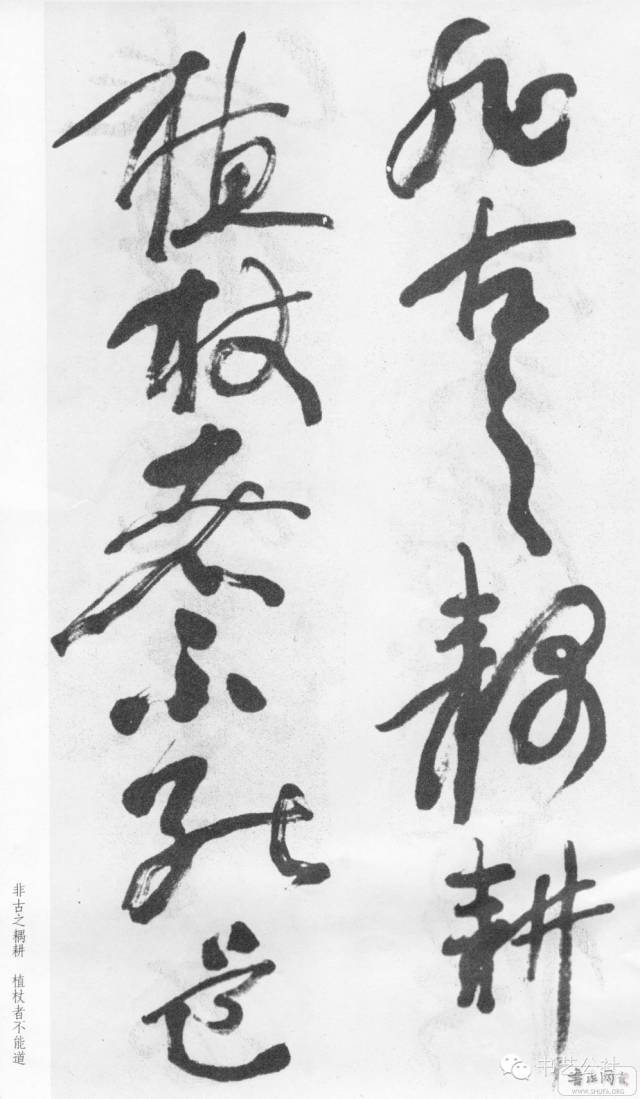 非古之耦耕
植杖者不能道
非古之耦耕 植杖者不能道
书艺公社
书法网
WWW.SHUFA.ORG